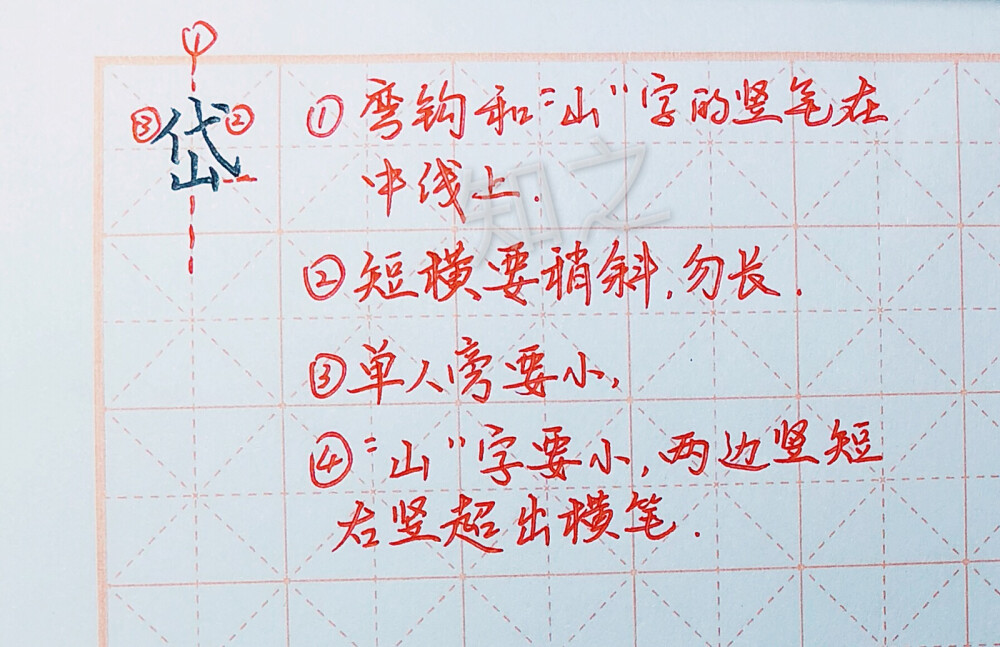 ①
③岱②
①弯钩和“山”字的竖笔在
中线上.
知之
②短横要稍斜,勿长.
③单人旁要小,
④“山”字要小,两边竖短
右竖超出横笔.